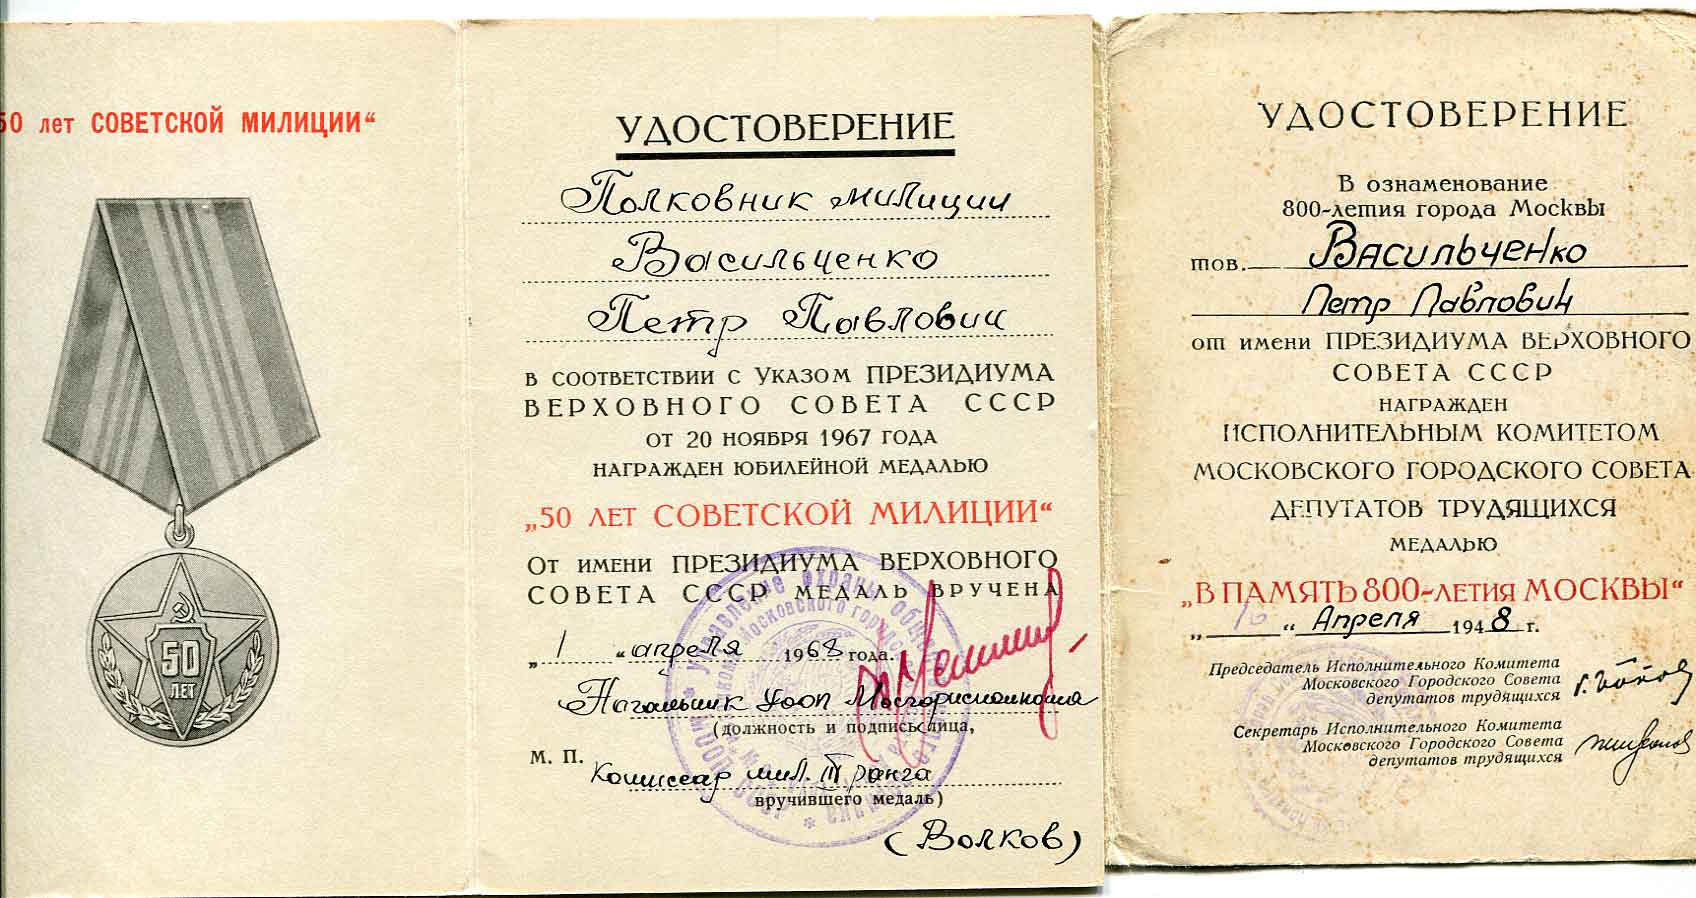 50 лет СОВЕТСКОЙ МИЛИЦИИ“
50
ЛЕТ
УДОСТОВЕРЕНИЕ
Полковник милиции
Васильченко
Петр Павлович
В СООТВЕТСТВИИ С УКАЗОМ ПРЕЗИДИУМА
ВЕРХОВНОГО СОВЕТА СССР
ОТ 20 НОЯБРЯ 1967 ГОДА
НАГРАЖДЕН ЮБИЛЕЙНОЙ МЕДАЛЬЮ
„50 ЛЕТ СОВЕТСКОЙ МИЛИЦИИ“
ОТ ИМЕНИ ПРЕЗИДИУМА ВЕРХОВНОГО
СОВЕТА СССР МЕДАЛЬ ВРУЧЕНА
„1“ апреля 1968 года.
Начальник УООП Мосгорисполкома
(должность и подпись лица,
М. П.
Комиссар мил. III ранга
вручившего медаль)
(Волков)
Управление охраны
Московского
УДОСТОВЕРЕНИЕ
В ознаменование
800-летия города Москвы
тов. Васильченко
Петр Павлович
от имени ПРЕЗИДИУМА ВЕРХОВНОГО
СОВЕТА СССР
НАГРАЖДЕН
ИСПОЛНИТЕЛЬНЫМ КОМИТЕТОМ
МОСКОВСКОГО ГОРОДСКОГО СОВЕТА
ДЕПУТАТОВ ТРУДЯЩИХСЯ
МЕДАЛЬЮ
„В ПАМЯТЬ 800-ЛЕТИЯ МОСКВЫ“
„10“ Апреля 1948 г.
Председатель Исполнительного Комитета
Московского Городского Совета
депутатов трудящихся
Секретарь Исполнительного Комитета
Московского Городского Совета
депутатов трудящихся